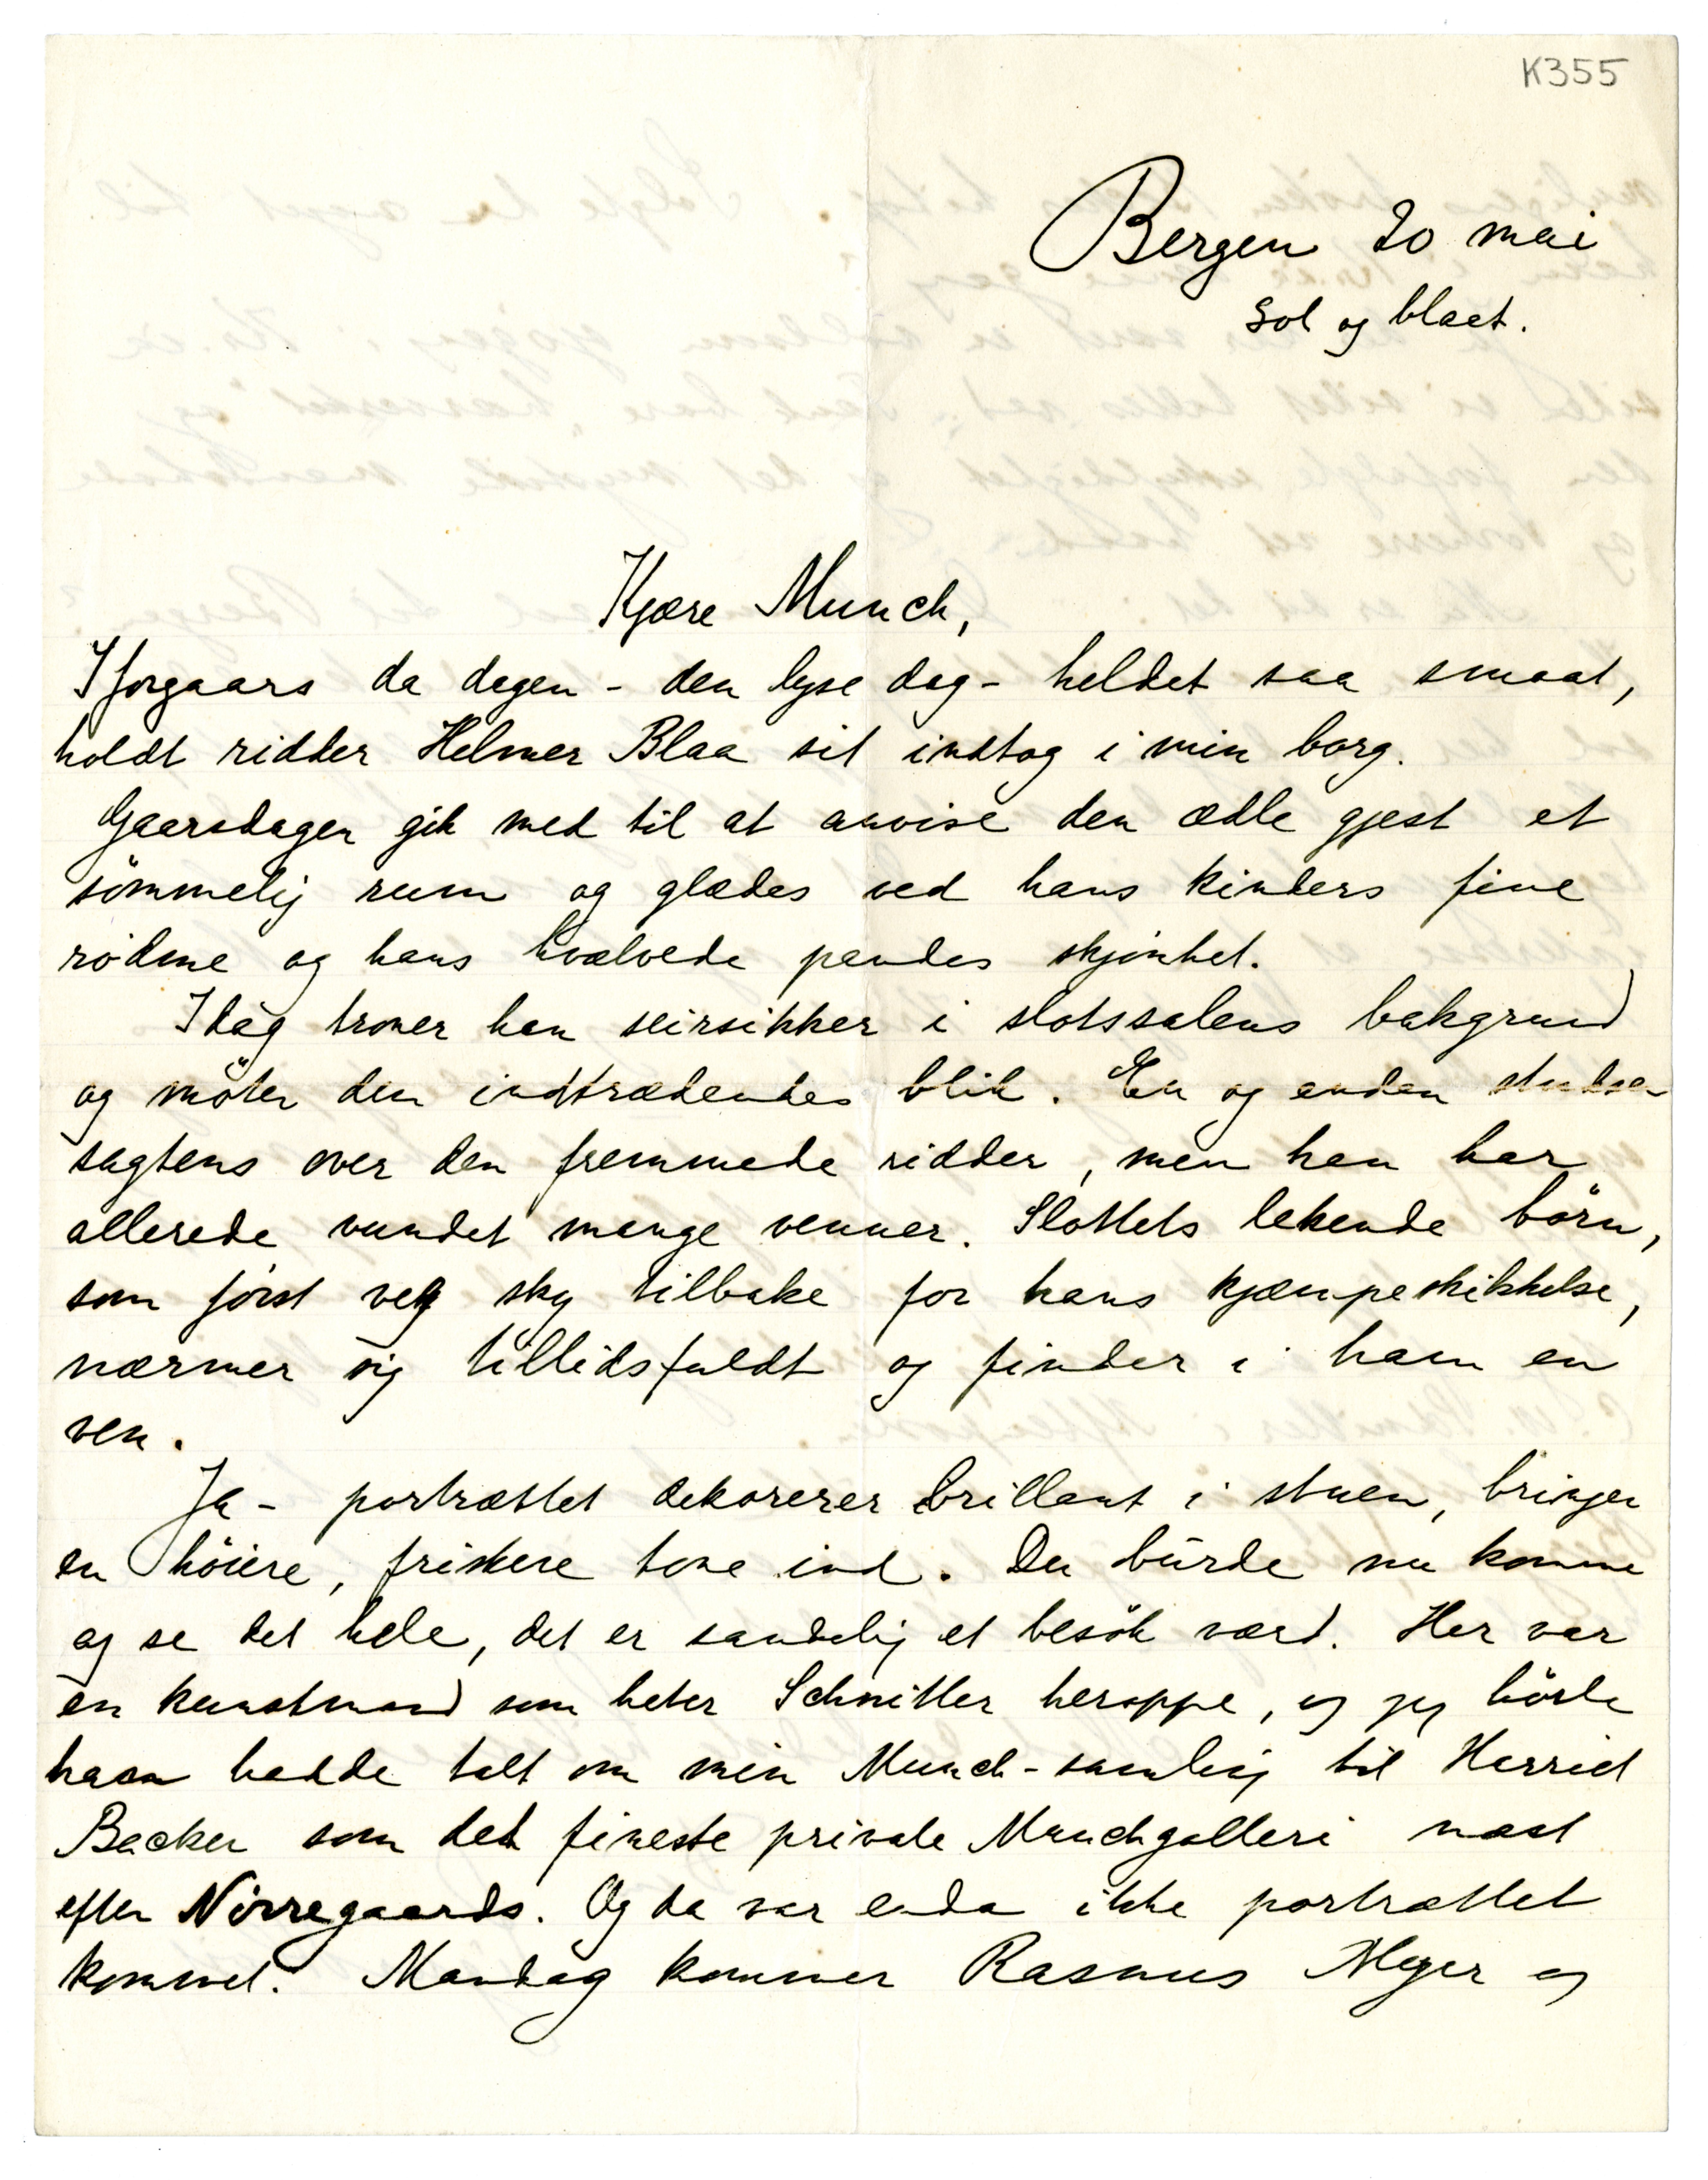 K355
Bergen 20 mai
Sol og blaat.
Kjære Munch,
Iforgaars da dagen - den lyse dag - heldet saa smaat,
holdt ridder Helmer Blaa sit indtog i min borg.
Gaarsdagen gik med til at anvise den ædle gjest et
sömmelig rum og glædes ved hans kinders fine
rödme og hans hvælvede pandes skjönhet.
Idag troner han seirsikker i slotssalens bakgrund
og möter den indtrædendes blik. En og anden studser
sagtens over den fremmede ridder, men han har
allerede vundet mange venner. Slottets lekende börn,
som först veg sky tilbake for hans kjæmpeskikkelse,
nærmer sig tillidsfuldt og finder i ham en
ven.
Ja - portrættet dekorerer brillant i stuen, bringer
en höiere, friskere tone ind. Du burde nu komme
og se det hele, det er sandelig et besök værd. Her var
en kunstmand som heter Schnitler heroppe, og jeg hörte
han hadde talt om min Munch-samling til Harriet
Backer som det fineste private Munchgalleri næst
efter Nörregaards. Og da var enda ikke portrættet
kommet. Mandag kommer Rasmus Meyer og